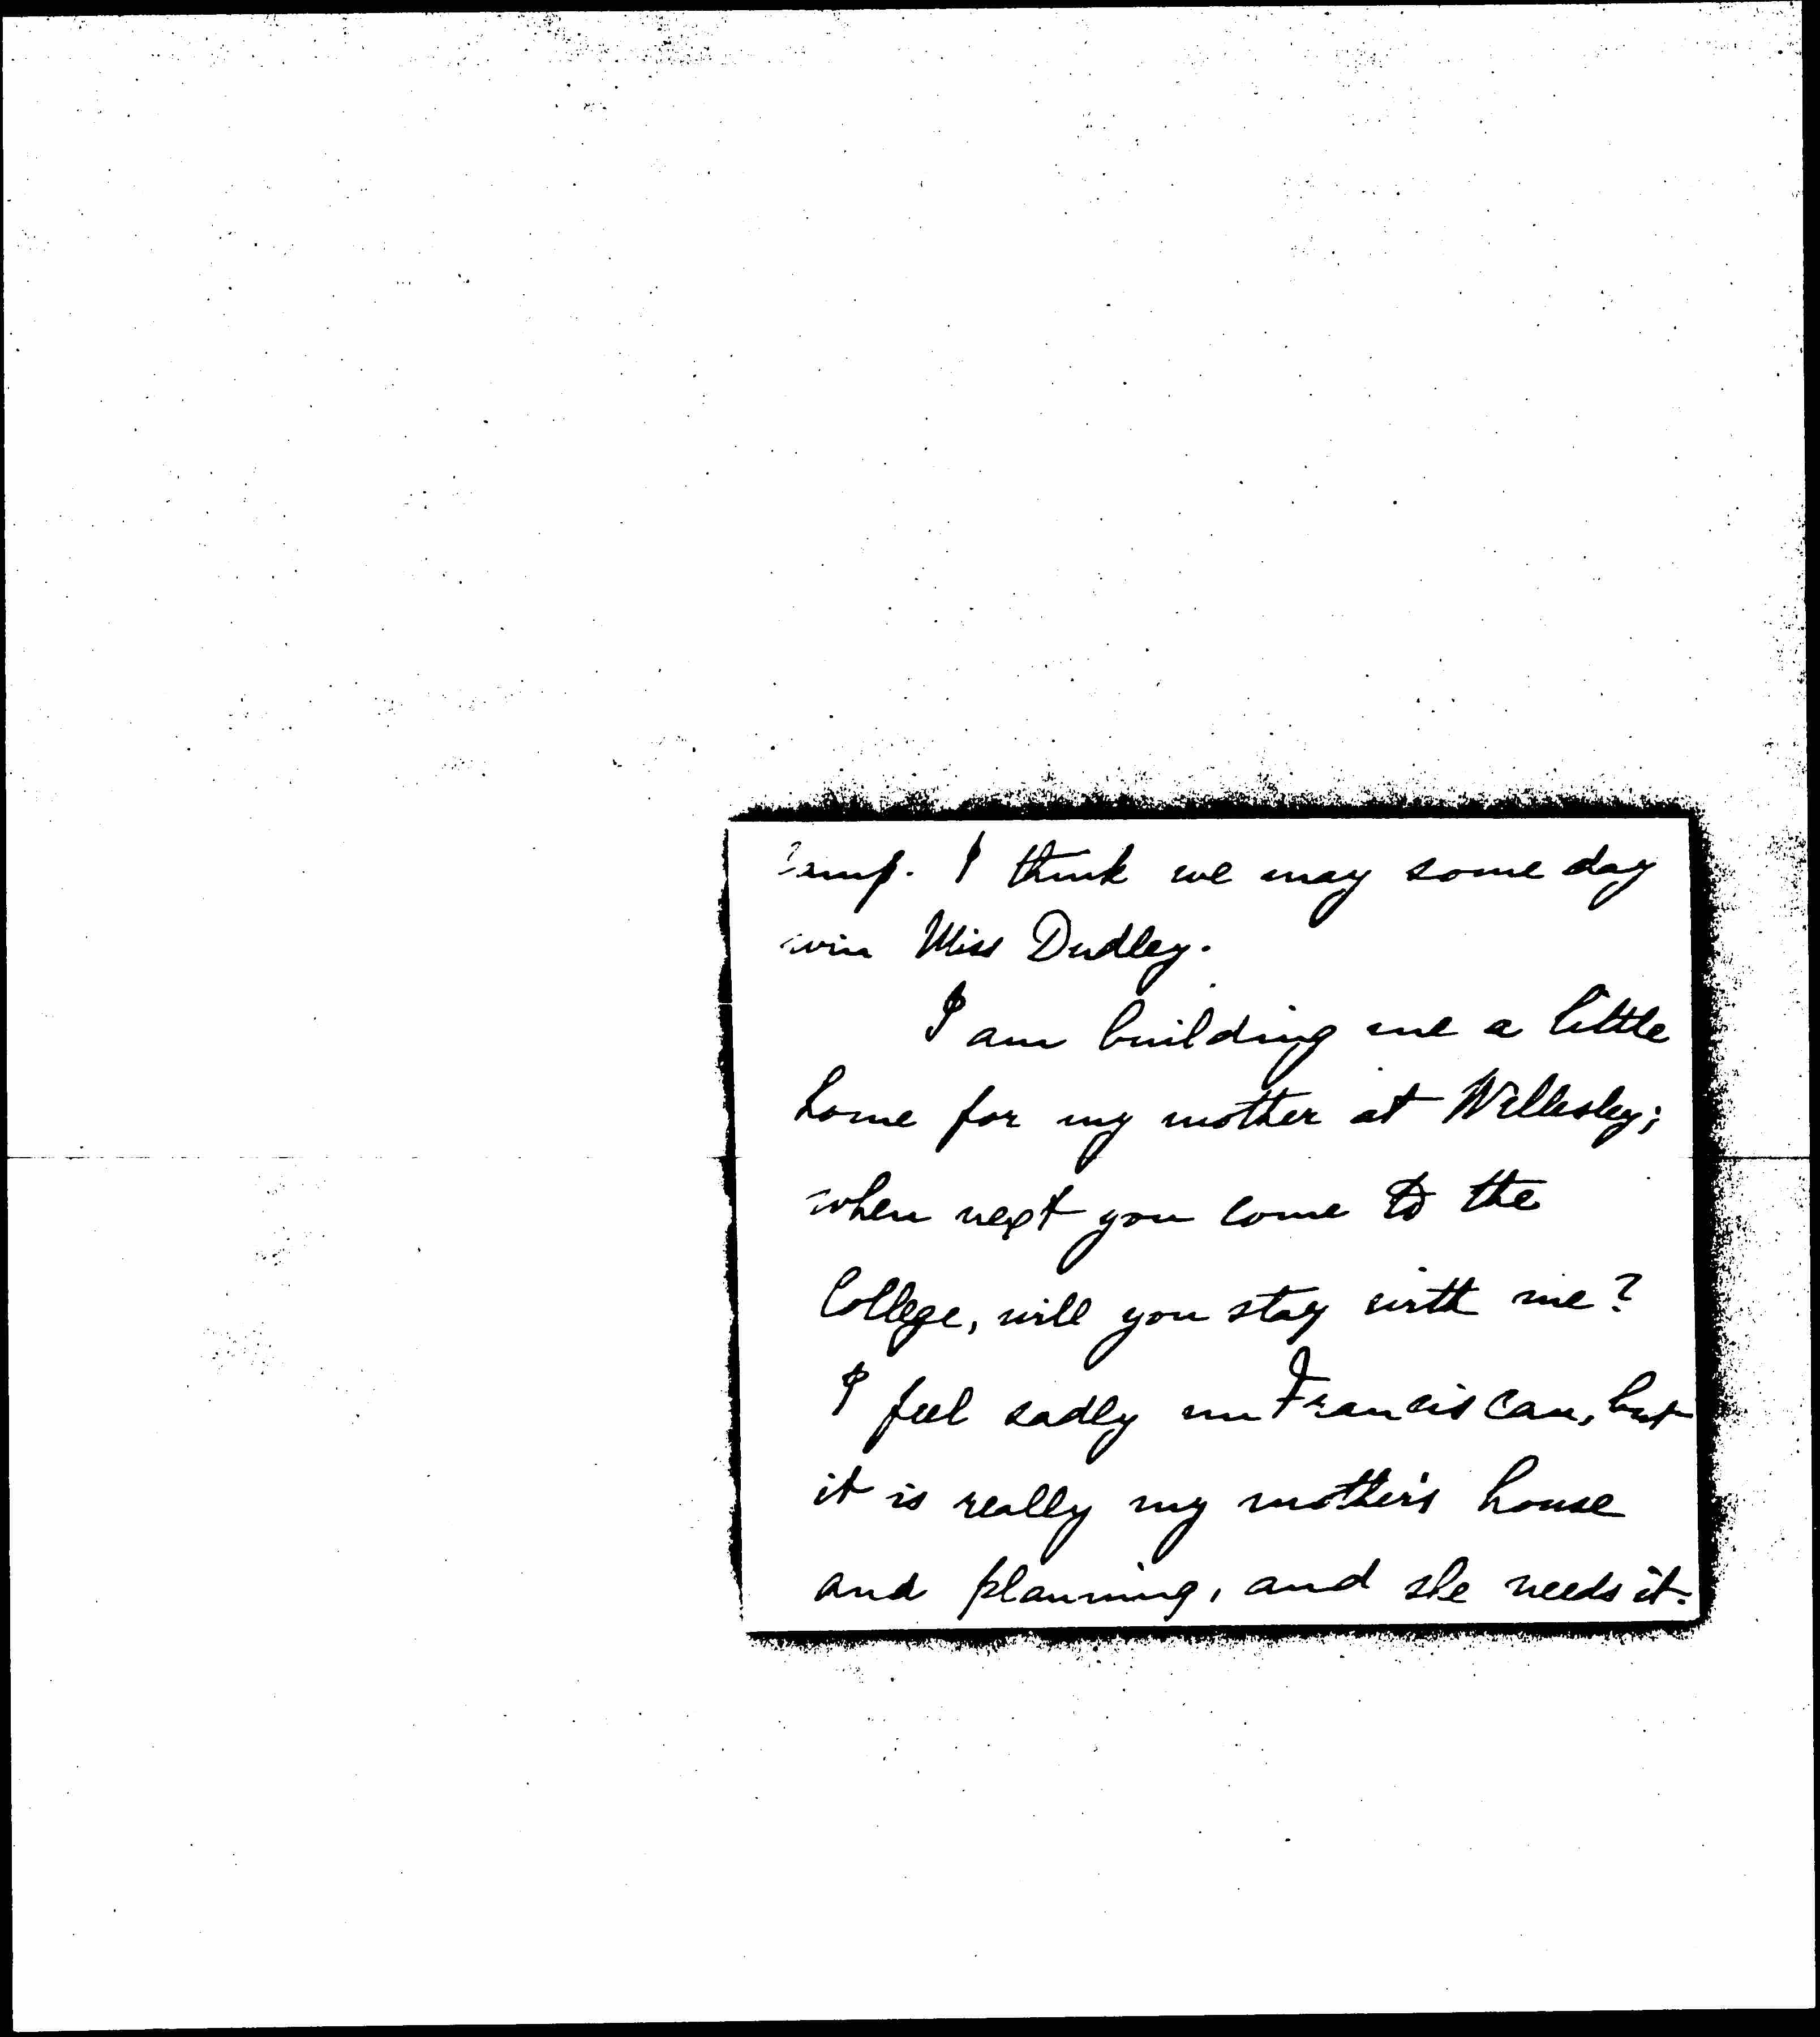 I think we may some day
win Miss Dudley.
I am building me a little
home for my mother at Wellesley;
when next you come to the
College, will you stay with me?
I feel sadly unFranciscan, but
it is really my mother's house
and planning, and she needs it.